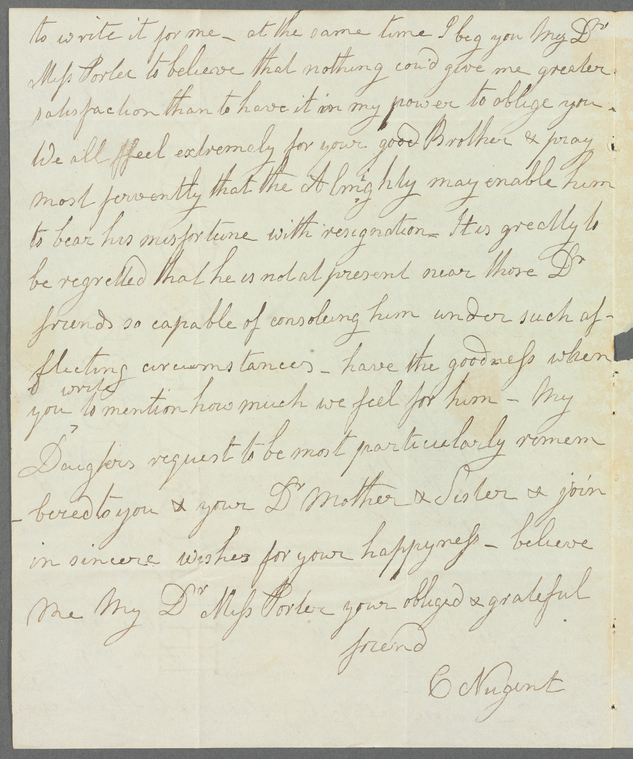 to write it for me - at the same time I beg you My Dr
Miss Porter to believe that nothing cou'd give me greater
satisfaction than to have it in my power to oblige you -
We all feel extremely for your good Brother & pray
most fervently that the Almighty may enable him
to bear his misfortune with resignation - It is greatly to
be regretted that he is not at present near those Dr
friends so capable of consoleing him under such af-
flicting circumstances - have the goodness when
you write to mention how much we feel for him - My
Daughters request to be most particularly remem
- bered to you & your Dr Mother & Sister & join
in sincere wishes for your happyness - believe
me My Dr Miss Porter your obliged & grateful
friend
C Nugent